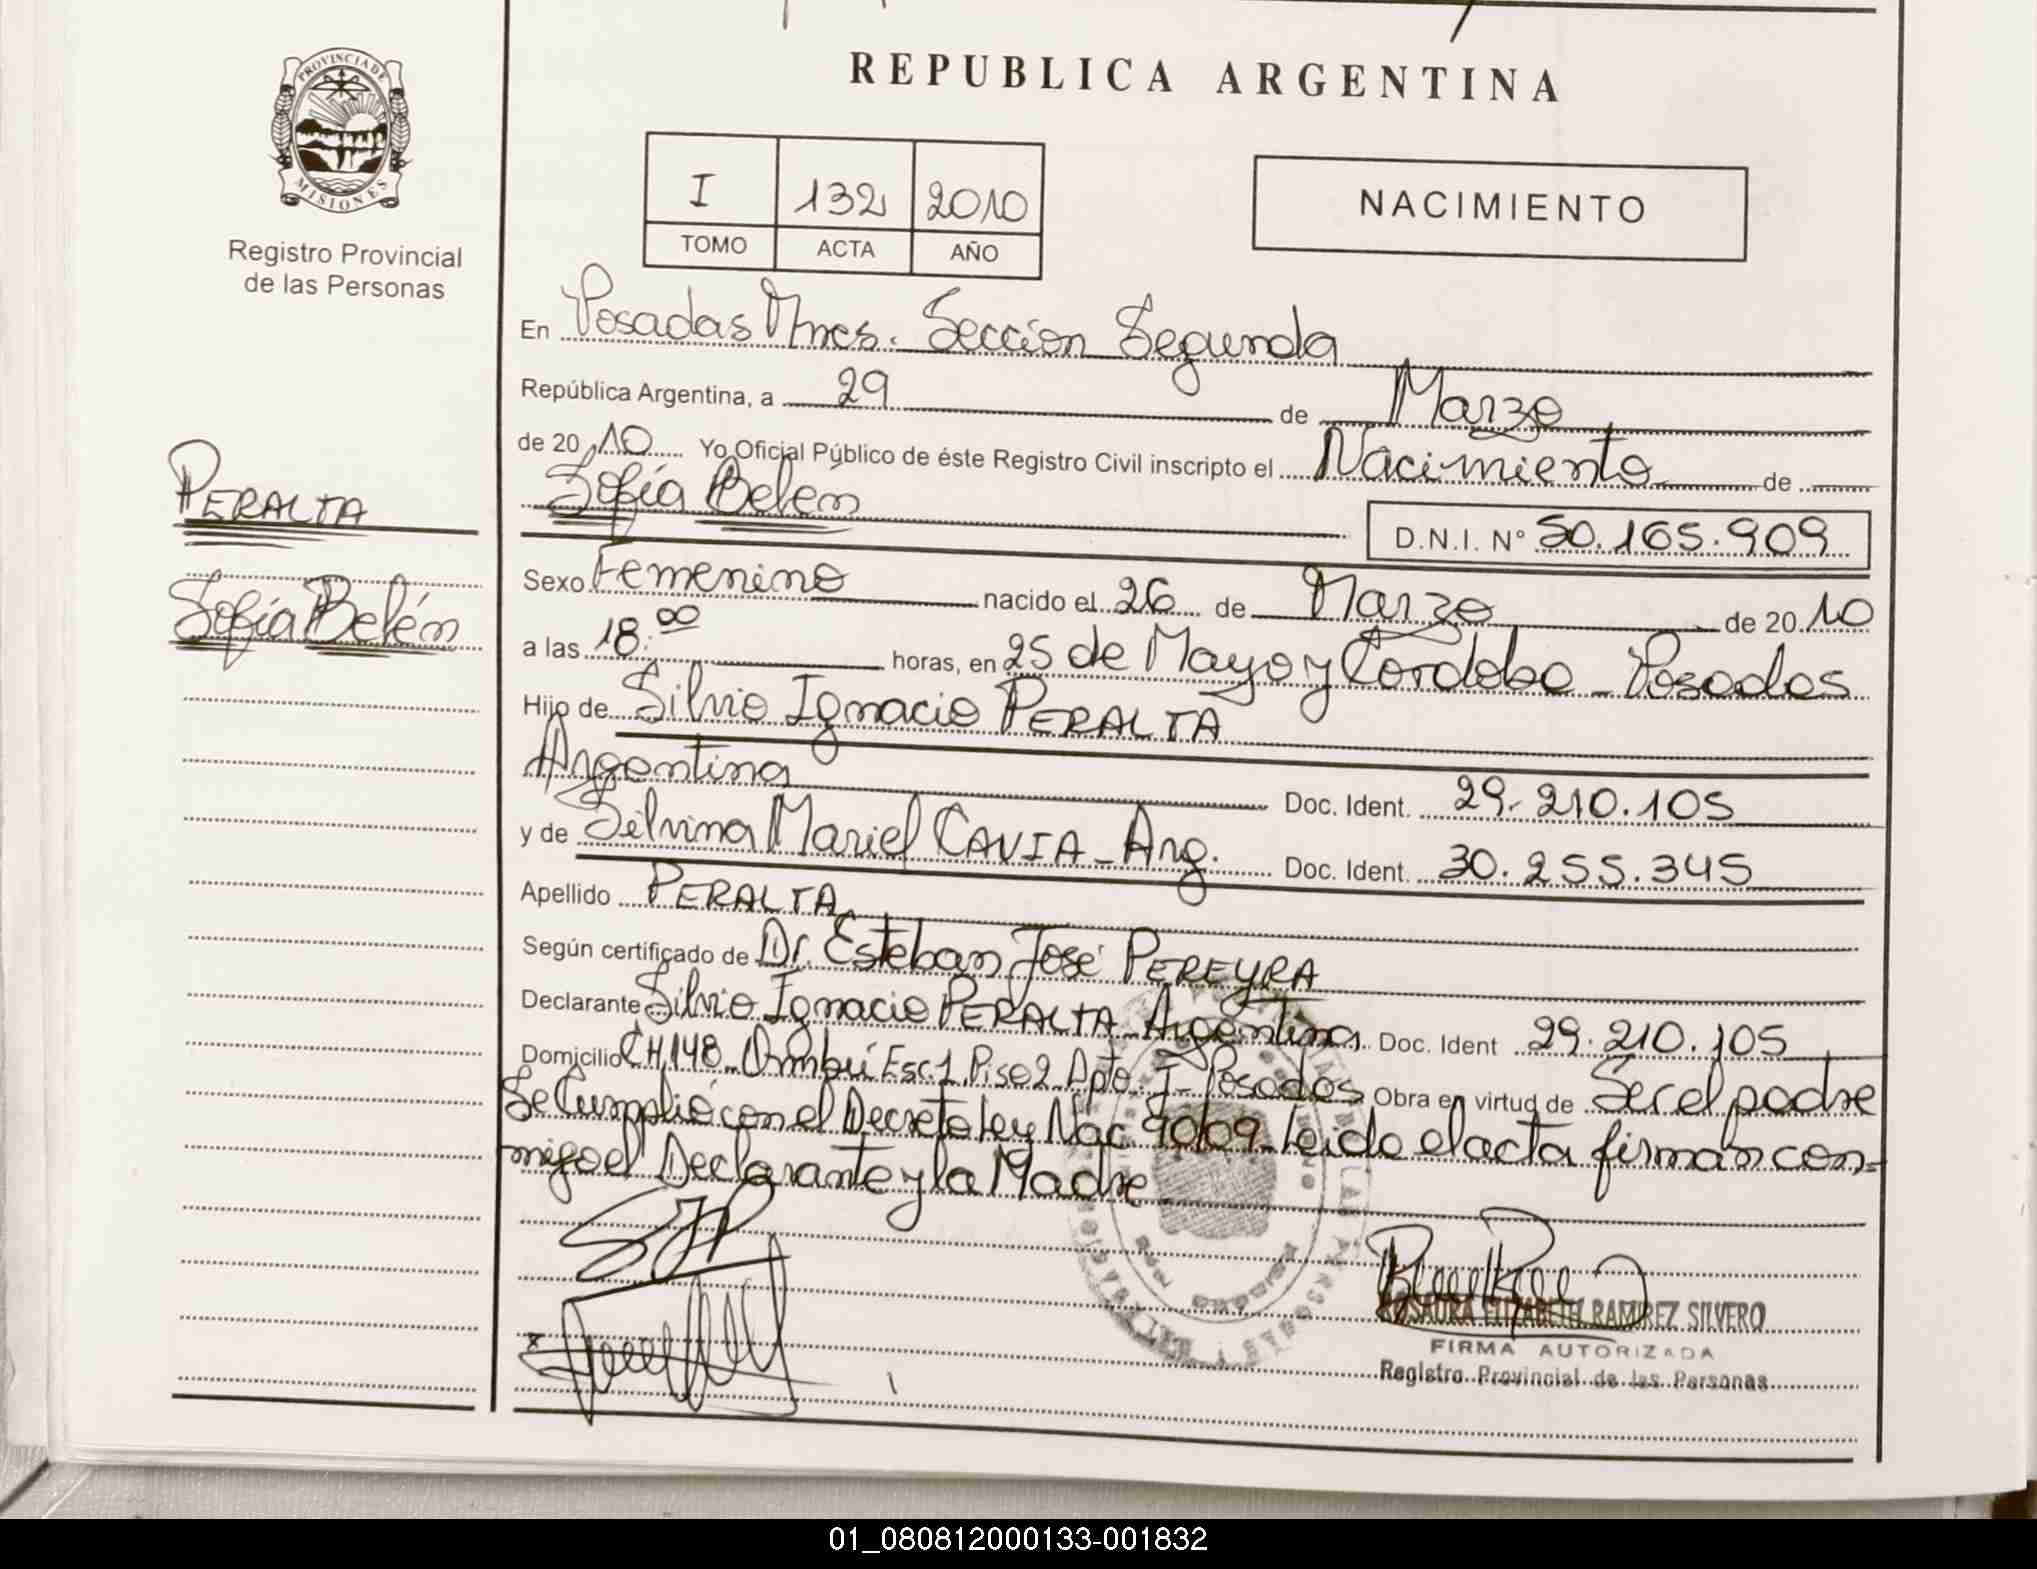 PROVINCIA DE
MISIONES
Registro Provincial
de las Personas
PERALTA
Sofía Belén
REPUBLICA ARGENTINA
I 132 2010
TOMO ACTA AÑO
NACIMIENTO
En Posadas Mnes. Sección Segunda
República Argentina, a 29 de Marzo
de 20 10 Yo Oficial Público de éste Registro Civil inscripto el Nacimiento de
Sofía Belén
D.N.I. N° 50.165.909
Sexo Femenino nacido el 26 de Marzo de 20 10
a las 18:00 horas, en 25 de Mayo y Cordoba - Posadas
Hijo de Silvio Ignacio PERALTA
Argentina Doc. Ident. 29.210.105
y de Silvina Mariel CAVIA - Arg. Doc. Ident. 30.255.345
Apellido PERALTA
Según certificado de Dr. Esteban José PEREYRA
Declarante Silvio Ignacio PERALTA - Argentina Doc. Ident 29.210.105
Domicilio CH.148 - Ombú Esc.1 Piso 2 Dpto. I - Posadas Obra en virtud de Ser el padre
Se Cumplió con el Decreto Ley Nac. 9009 - Leido el acta firman con-
migo el Declarante y la Madre
ROSAURA ELIZABETH RAMIREZ SILVERO
FIRMA AUTORIZADA
Registro Provincial de las Personas
01_080812000133-001832